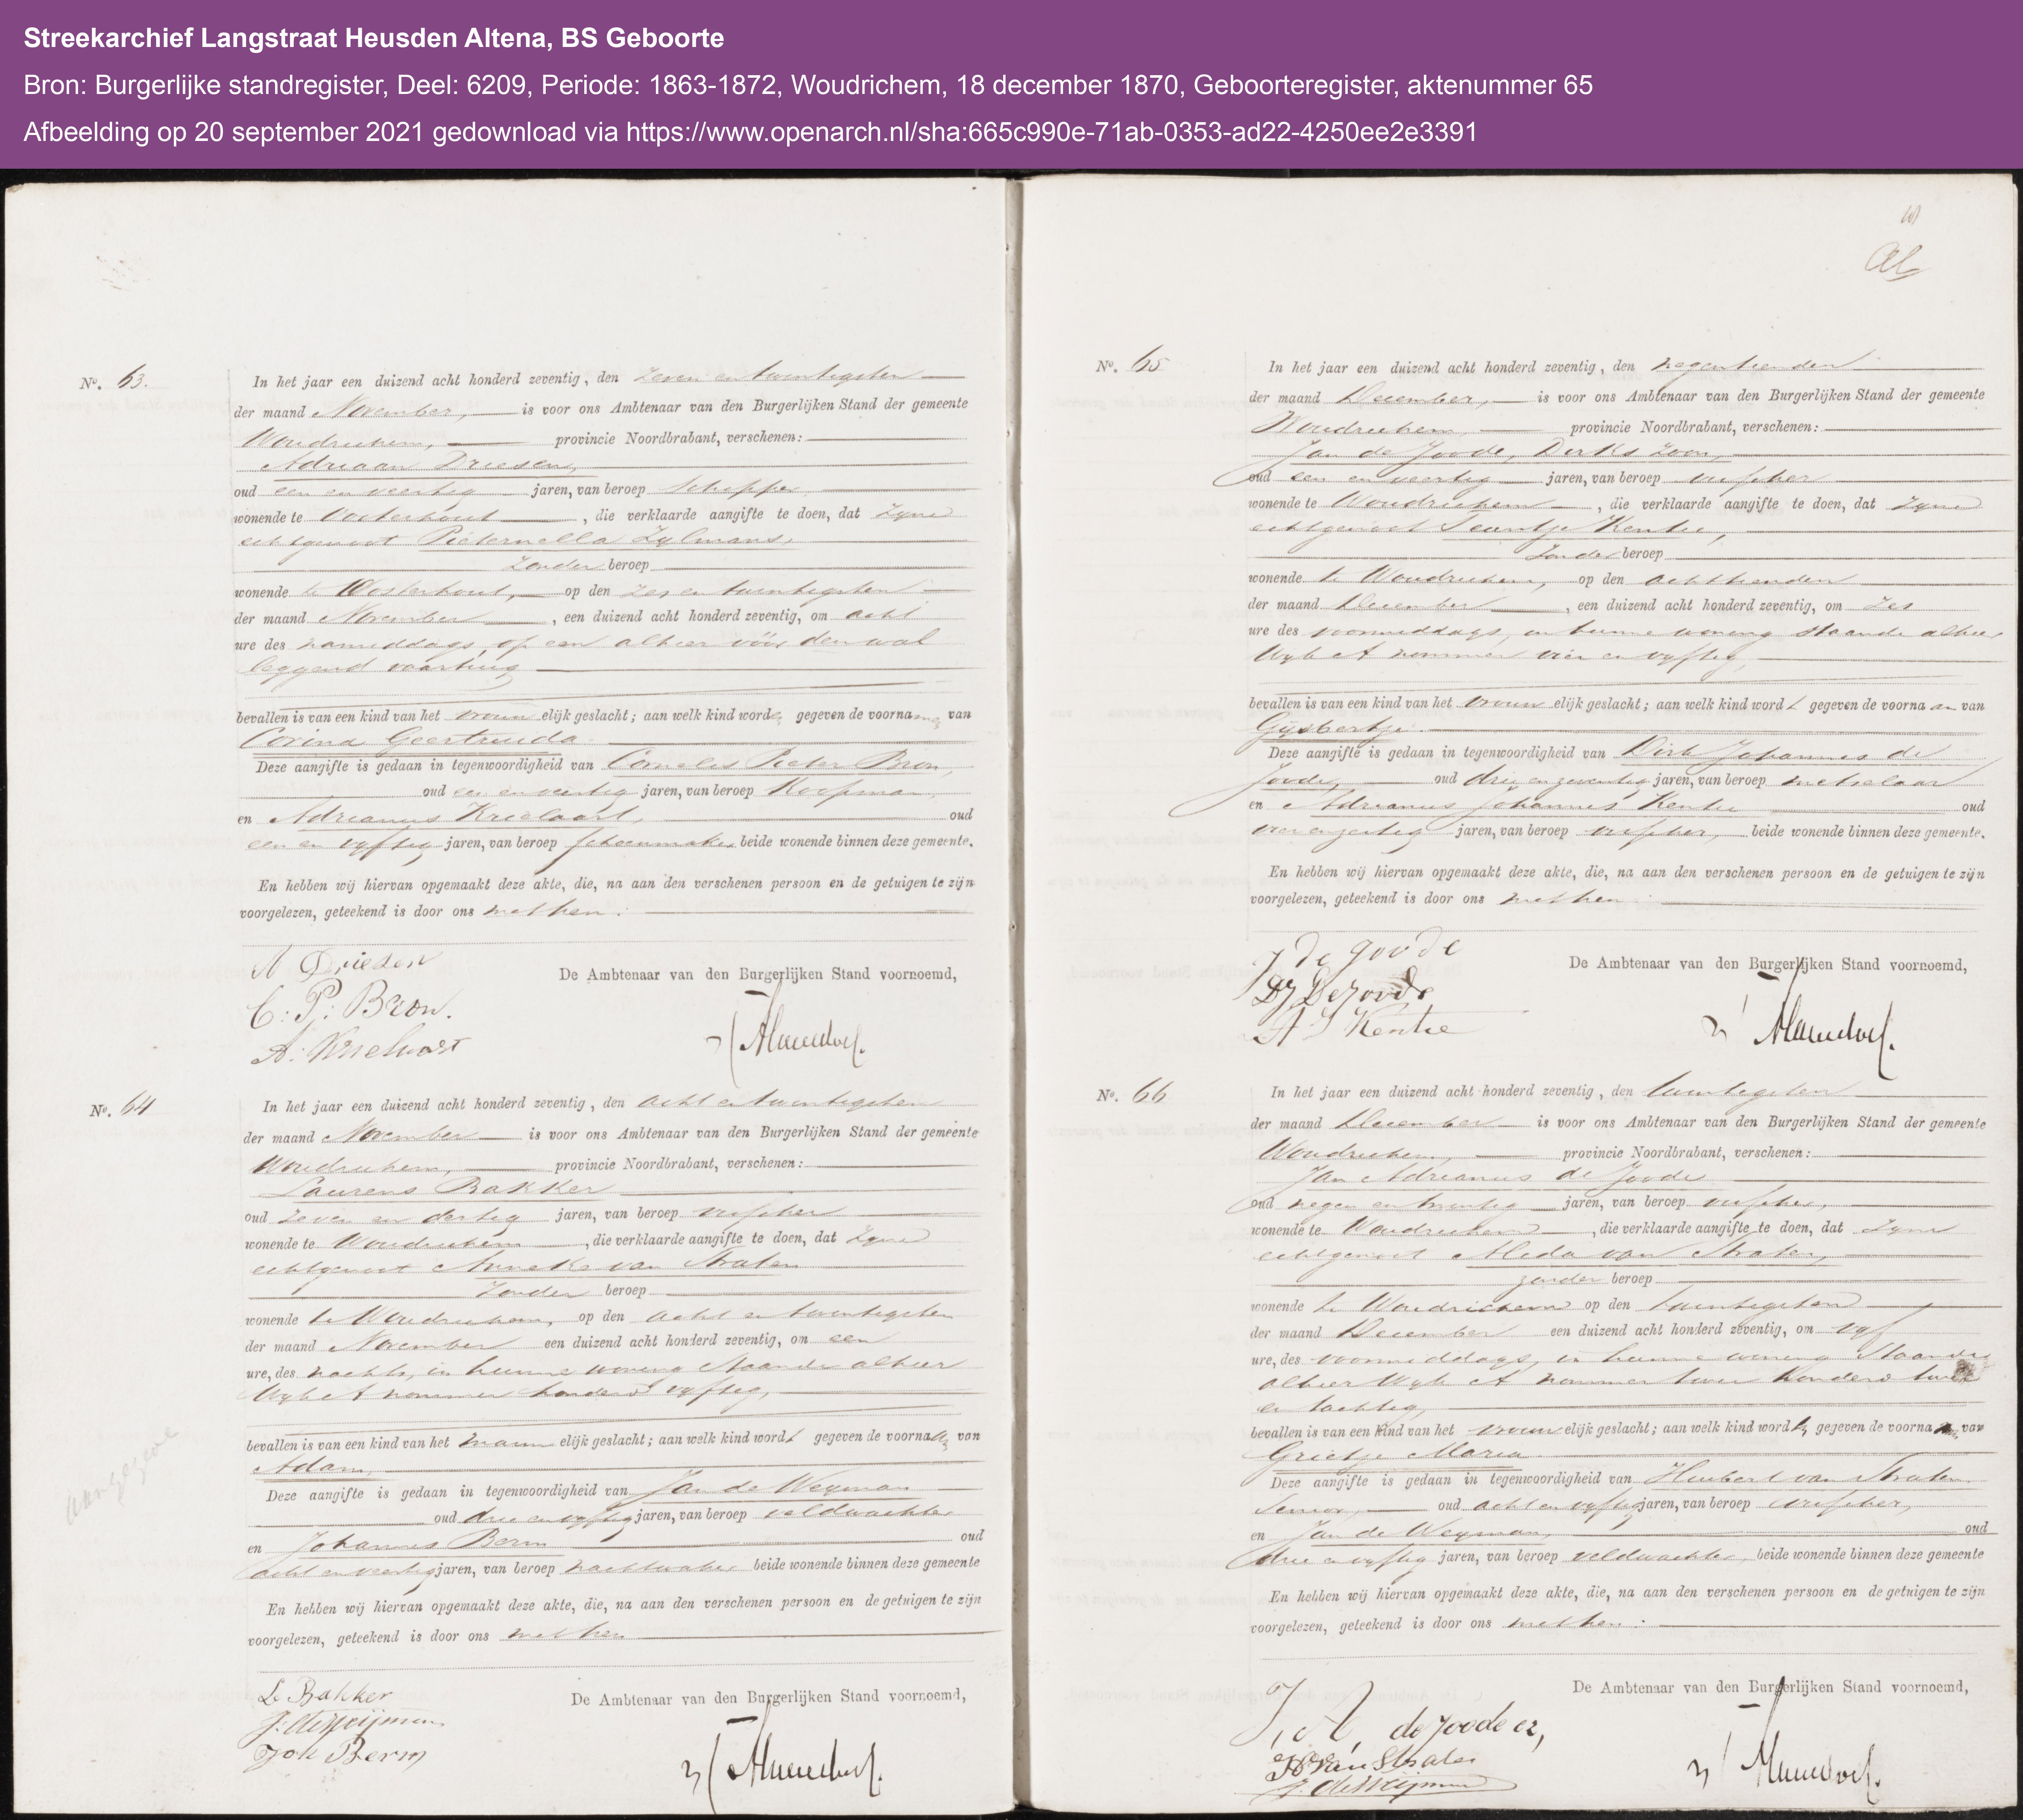 Streekarchief Langstraat Heusden Altena, BS Geboorte
Bron: Burgerlijke standregister, Deel: 6209, Periode: 1863-1872, Woudrichem, 18 december 1870, Geboorteregister, aktenummer 65
Afbeelding op 20 september 2021 gedownload via https://www.openarch.nl/sha:665c990e-71ab-0353-ad22-4250ee2e3391
No. 63.
In het jaar een duizend acht honderd zeventig, den zeven en twintigsten
der maand November, is voor ons Ambtenaar van den Burgerlijken Stand der gemeente
Woudrichem, provincie Noordbrabant, verschenen:
Adriaan Driesen,
oud een en veertig jaren, van beroep schipper,
wonende te Oosterhout, die verklaarde aangifte te doen, dat zyne
echtgenoot Pieternella Zylmans,
zonder beroep
wonende te Oosterhout, op den zes en twintigsten
der maand November, een duizend acht honderd zeventig, om acht
ure des namiddags, op een alhier vóór den wal
leggend vaartuig
bevallen is van een kind van het vrouwelijk geslacht; aan welk kind worden gegeven de voornamen van
Corina Geertruida.
Deze aangifte is gedaan in tegenwoordigheid van Cornelis Pieter Bron,
oud een en veertig jaren, van beroep Koopman,
en Adrianus Krielaart, oud
een en vyftig jaren, van beroep schoenmaker beide wonende binnen deze gemeente.
En hebben wij hiervan opgemaakt deze akte, die, na aan den verschenen persoon en de getuigen te zijn
voorgelezen, geteekend is door ons met hen.
De Ambtenaar van den Burgerlijken Stand voornoemd,
A Driesen
C: P: Bron.
A. Krielaart
No. 64
In het jaar een duizend acht honderd zeventig, den acht en twintigsten
der maand November is voor ons Ambtenaar van den Burgerlijken Stand der gemeente
Woudrichem, provincie Noordbrabant, verschenen:
Laurens Bakker
oud zeven en dertig jaren, van beroep visscher
wonende te Woudrichem, die verklaarde aangifte te doen, dat zyne
echtgenoot Anneke van Straten
zonder beroep
wonende te Woudrichem, op den acht en twintigsten
der maand November een duizend acht honderd zeventig, om een
ure, des nachts, in hunne woning staande alhier
Wyk A nommer honderd vyftig,
bevallen is van een kind van het mannelijk geslacht; aan welk kind wordt gegeven de voornaam van
Adam,
Deze aangifte is gedaan in tegenwoordigheid van Jan de Weyman
oud drie en vyftig jaren, van beroep veldwachter
en Johannes Berm oud
acht en veertig jaren, van beroep nachtwaker beide wonende binnen deze gemeente
En hebben wij hiervan opgemaakt deze akte, die, na aan den verschenen persoon en de getuigen te zijn
voorgelezen, geteekend is door ons met hen
De Ambtenaar van den Burgerlijken Stand voornoemd,
L. Bakker
J: de Weijman
Joh Berm
aangegeve
No. 65
In het jaar een duizend acht honderd zeventig, den negentienden
der maand December, is voor ons Ambtenaar van den Burgerlijken Stand der gemeente
Woudrichem, provincie Noordbrabant, verschenen:
Jan de Joode, Dirks zoon,
oud een en veertig jaren, van beroep visscher
wonende te Woudrichem, die verklaarde aangifte te doen, dat zyne
echtgenoot Teuntje Kentie,
zonder beroep
wonende te Woudrichem, op den achttienden
der maand December, een duizend acht honderd zeventig, om zes
ure des voormiddags, in hunne woning staande alhier,
Wyk A nommer vier en vyftig,
bevallen is van een kind van het vrouwelijk geslacht; aan welk kind wordt gegeven de voornaam van
Gysbertje.
Deze aangifte is gedaan in tegenwoordigheid van Dirk Johannes de
Joode, oud drie en zeventig jaren, van beroep metselaar
en Adrianus Johannes Kentie oud
vier en zestig jaren, van beroep visscher, beide wonende binnen deze gemeente.
En hebben wij hiervan opgemaakt deze akte, die, na aan den verschenen persoon en de getuigen te zijn
voorgelezen, geteekend is door ons met hen.
De Ambtenaar van den Burgerlijken Stand voornoemd,
J de Joode
DJ DeJoode
A J Kentie
No. 66
In het jaar een duizend acht honderd zeventig, den twintigsten
der maand December is voor ons Ambtenaar van den Burgerlijken Stand der gemeente
Woudrichem, provincie Noordbrabant, verschenen:
Jan Adrianus de Joode
oud negen en twintig jaren, van beroep visscher,
wonende te Woudrichem, die verklaarde aangifte te doen, dat zyne
echtgenoot Aleda van Straten,
zonder beroep
wonende te Woudrichem op den twintigsten
der maand December een duizend acht honderd zeventig, om vyf
ure, des voormiddags, in hunne woning staande
alhier Wyk A nommer twee honderd twee
en tachtig,
bevallen is van een kind van het vrouwelijk geslacht; aan welk kind worden gegeven de voornamen van
Grietje Maria
Deze aangifte is gedaan in tegenwoordigheid van Huibert van Straten
Senior, oud acht en vyftig jaren, van beroep visscher,
en Jan de Weyman, oud
drie en vyftig jaren, van beroep veldwachter, beide wonende binnen deze gemeente
En hebben wij hiervan opgemaakt deze akte, die, na aan den verschenen persoon en de getuigen te zijn
voorgelezen, geteekend is door ons met hen.
De Ambtenaar van den Burgerlijken Stand voornoemd,
J, A, de Joode
H van Strate
J. de Weijman